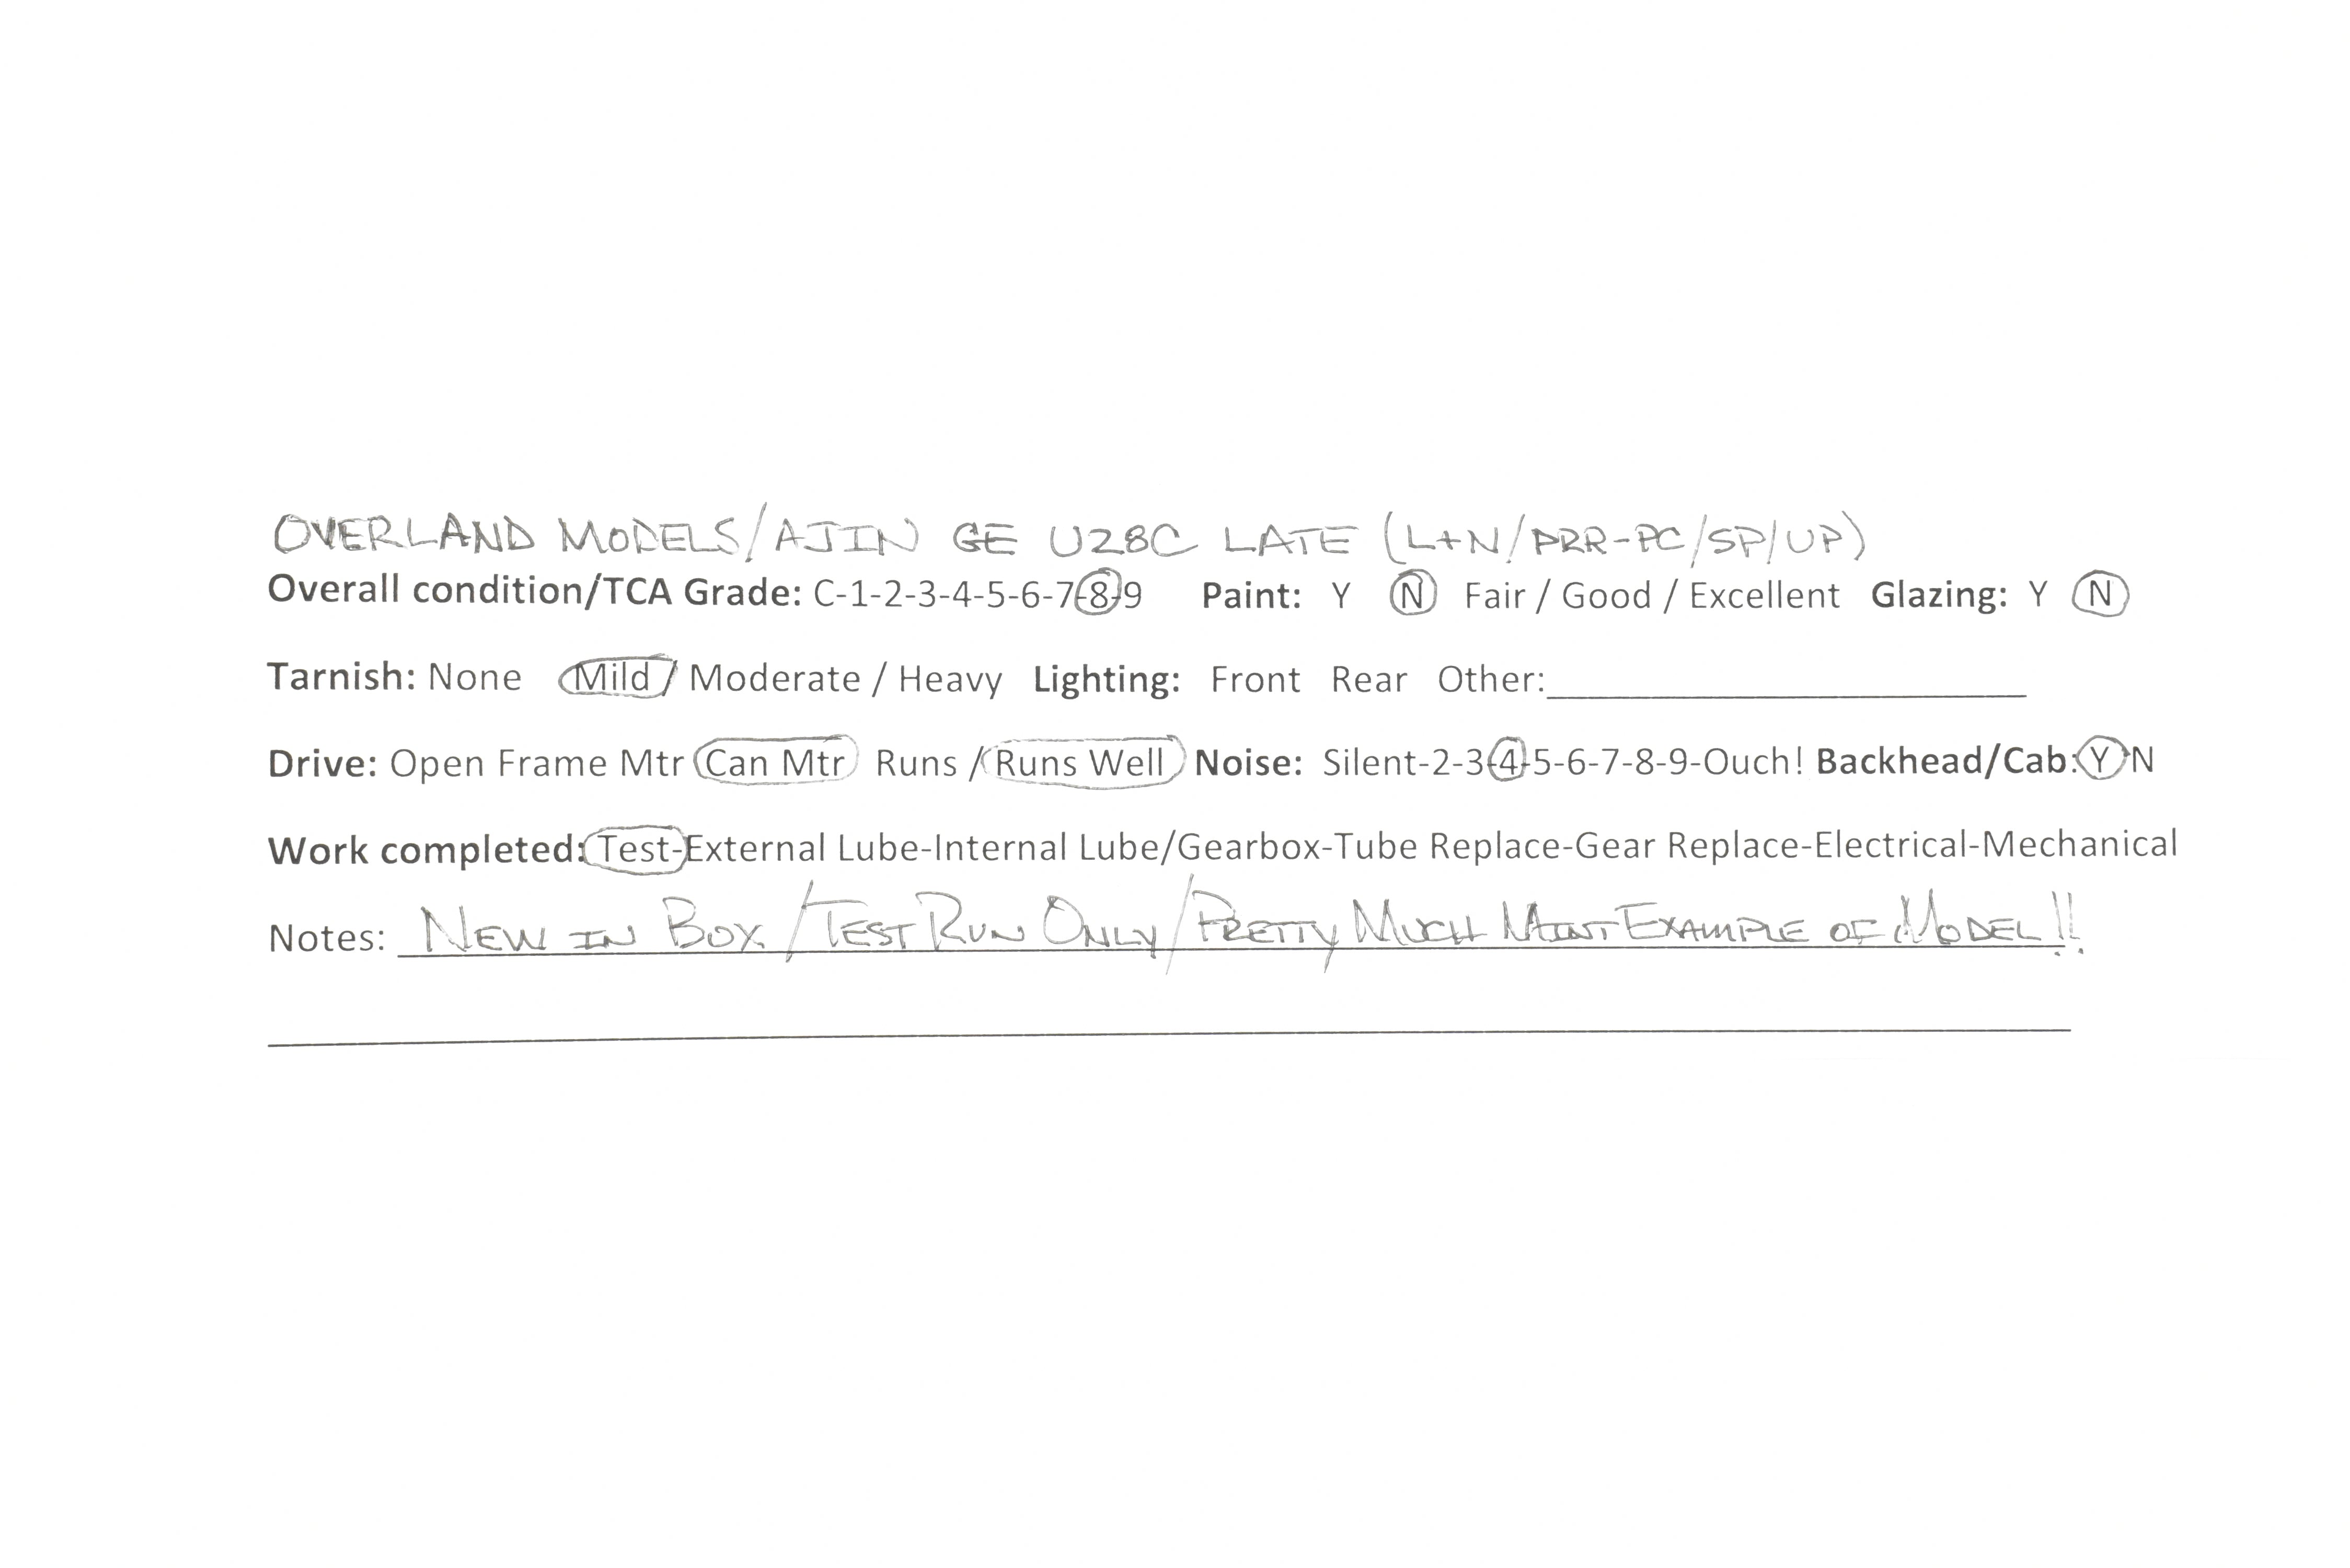 OVERLAND MODELS/AJIN GE U28C LATE (L+N/PRR-PC/SP/UP)
Overall condition/TCA Grade: C-1-2-3-4-5-6-7-8-9 Paint: Y N Fair / Good / Excellent Glazing: Y N
Tarnish: None Mild / Moderate / Heavy Lighting: Front Rear Other:
Drive: Open Frame Mtr Can Mtr Runs / Runs Well Noise: Silent-2-3-4-5-6-7-8-9-Ouch! Backhead/Cab: Y N
Work completed: Test-External Lube-Internal Lube/Gearbox-Tube Replace-Gear Replace-Electrical-Mechanical
Notes: NEW IN BOX/TEST RUN ONLY/PRETTY MUCH MINT EXAMPLE OF MODEL!!